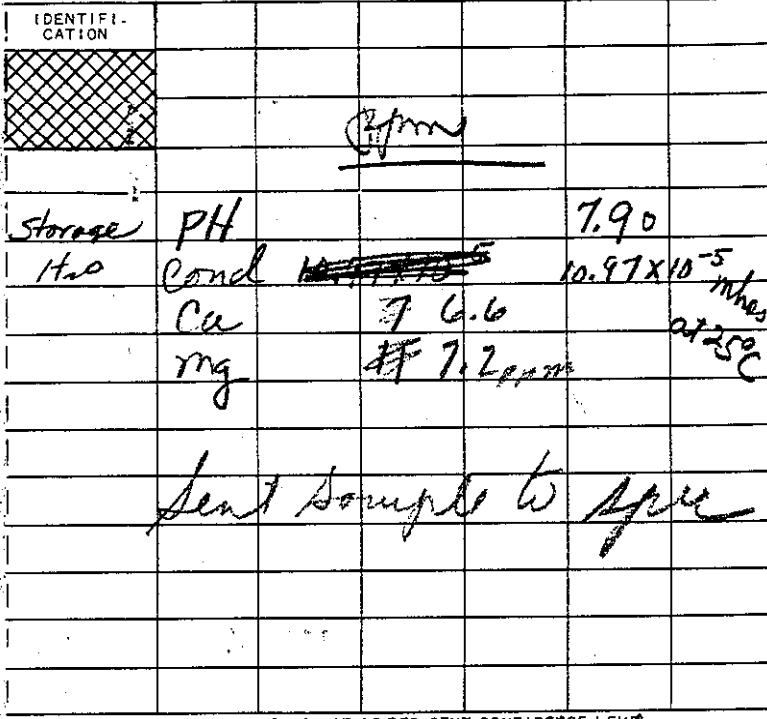 IDENTIFI-
CATION
ppm
Storage PH 7.90
H2O Cond 10.97x10-5 mhos
at 25°C
Ca 6.6
mg 7.2 ppm
Sent sample to spec